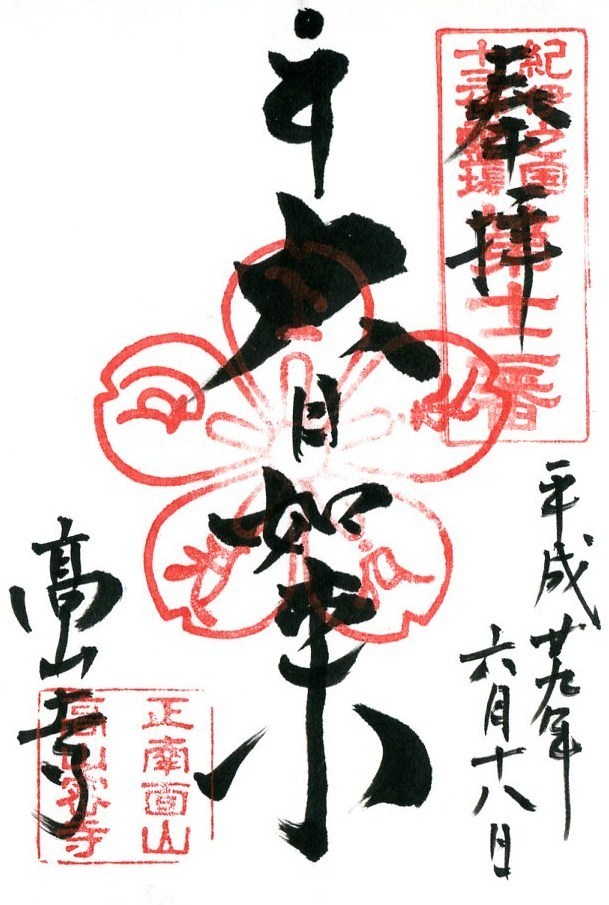 奉拝
紀伊之国
十三佛霊場
第十二番
平成廿九年
六月十八日
大日如来
高山寺
正南面山
高山密寺